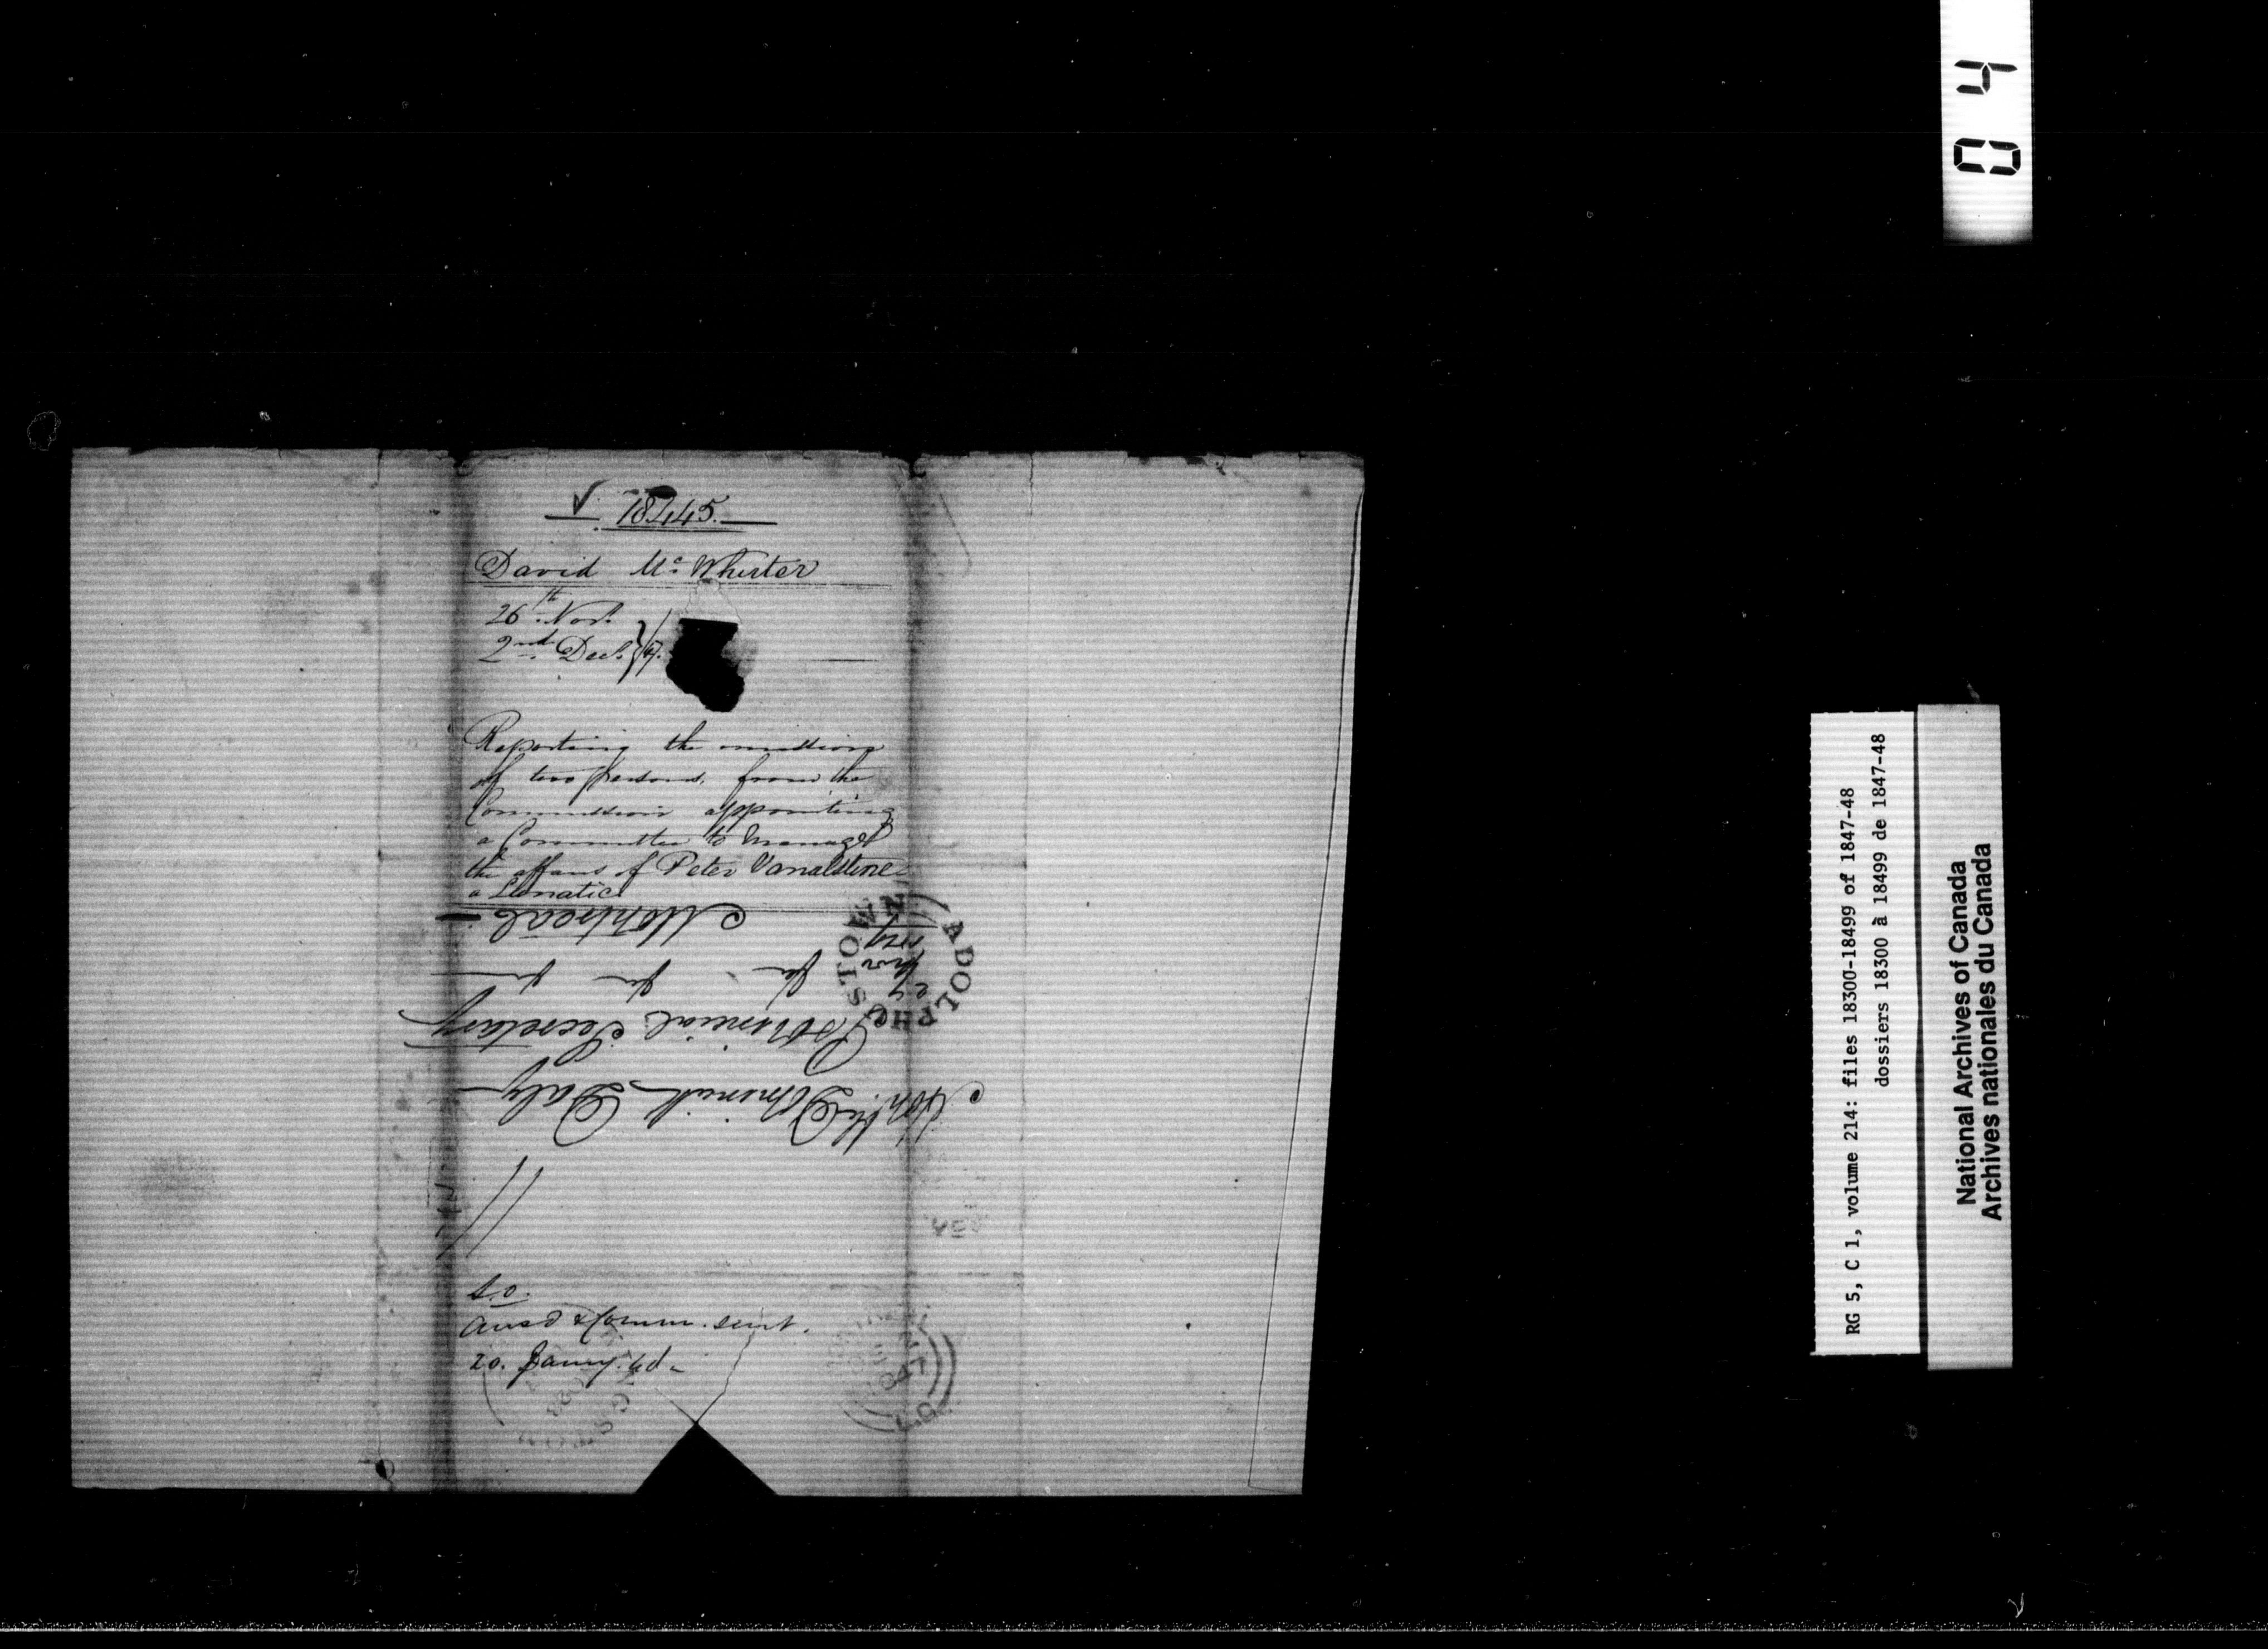 18445.
David Mc. Whirter
26th Nov.
2nd Dec. /47.
Reporting the omission
of two persons, from the
Commission appointing
a Committee to manage
the affairs of Peter Vanalstine
a Lunatic
Montreal
Provincial Secretary
Honble Dominick Daly
ADOLPHUSTOWN
S.O.
Ansd & Comm. sent.
20. Jany. 48
KINGSTON
MONTREAL
DE 2
1847
L.C.
04
RG 5, C 1, volume 214: files 18300-18499 of 1847-48
dossiers 18300 à 18499 de 1847-48
National Archives of Canada
Archives nationales du Canada